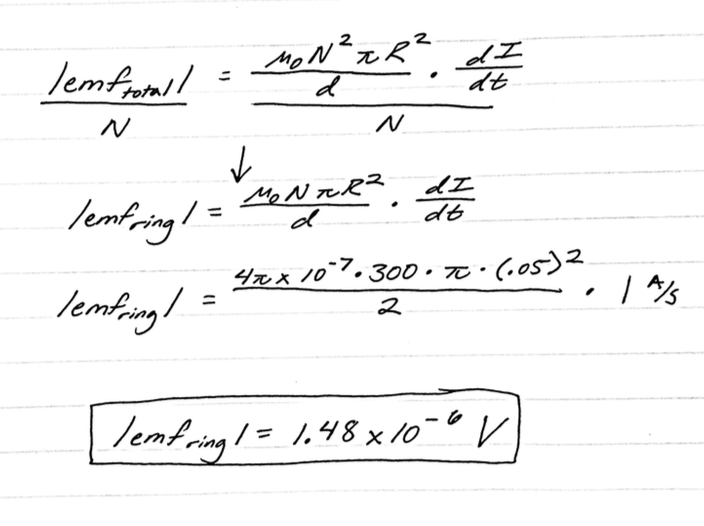 |emf_total| / N = (μ₀N²πR² / d · dI/dt) / N
↓
|emf_ring| = μ₀NπR² / d · dI/dt
|emf_ring| = 4π x 10⁻⁷ · 300 · π · (.05)² / 2 · 1 A/s
|emf_ring| = 1.48 x 10⁻⁶ V